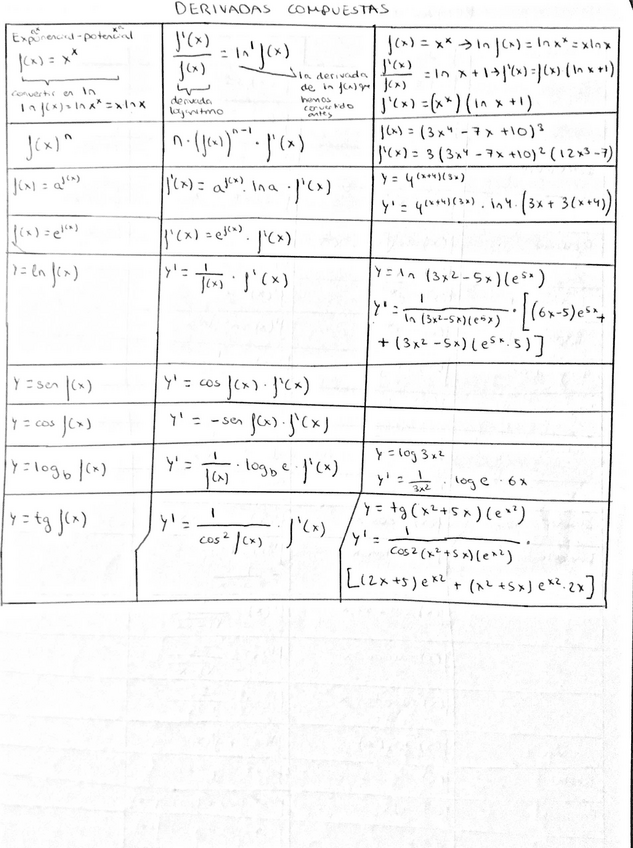 DERIVADAS COMPUESTAS
Exponencial-potencial
f(x) = x^x
convertir en ln
ln f(x) = ln x^x = x ln x
f'(x)/f(x) = ln' f(x)
derivada logaritmo
la derivada de ln f(x) que hemos convertido antes
f(x) = x^x → ln f(x) = ln x^x = x ln x
f'(x)/f(x) = ln x + 1 → f'(x) = f(x) (ln x + 1)
f'(x) = (x^x) (ln x + 1)
f(x)^n
n · (f(x))^(n-1) · f'(x)
f(x) = (3x^4 - 7x + 10)^3
f'(x) = 3(3x^4 - 7x + 10)^2 (12x^3 - 7)
f(x) = a^f(x)
f'(x) = a^f(x) · ln a · f'(x)
y = 4^(x+4)(3x)
y' = 4^(x+4)(3x) · ln 4 · (3x + 3(x+4))
f(x) = e^f(x)
f'(x) = e^f(x) · f'(x)
y = ln f(x)
y' = 1/f(x) · f'(x)
y = ln (3x^2 - 5x)(e^5x)
y' = 1/ln (3x^2 - 5x)(e^5x) · [(6x-5)e^5x +
+ (3x^2 - 5x)(e^5x · 5)]
y = sen f(x)
y' = cos f(x) · f'(x)
y = cos f(x)
y' = -sen f(x) · f'(x)
y = log_b f(x)
y' = 1/f(x) · log_b e · f'(x)
y = log 3x^2
y' = 1/3x^2 · log e · 6x
y = tg f(x)
y' = 1/cos^2 f(x) · f'(x)
y = tg (x^2 + 5x)(e^x^2)
y' = 1/cos^2 (x^2 + 5x)(e^x^2) ·
[(2x+5) e^x^2 + (x^2 + 5x) e^x^2 · 2x]